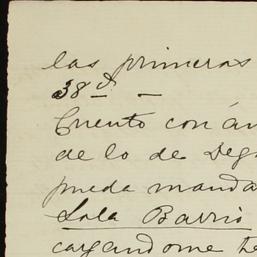 las primeras
38ª —
Cuento con án
de lo de Deg
pueda manda
Lola Barrio
cargandome te